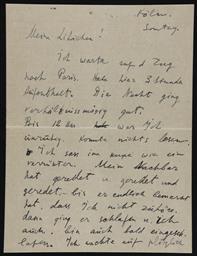 Köln.
Sonntag.
Mein Liebchen!
Ich warte auf d Zug
nach Paris. Habe hier 3 Stunde
Aufenthalt. Die Nacht ging
verhältnissmässig gut.
Bis 12 Uhr war Ich
einruhig. Konnte nichts lesen.
Ich sass im wie ein
verrückter. Mein Nachbar
hat geredet u geredet und
geredet bis er endlich bemerkt
hat, dass Ich nicht zuhöre.
dann ging er schlafen u. Ich
auch. bin auch bald eingesch
lafen. Ich machte auf plötzlich